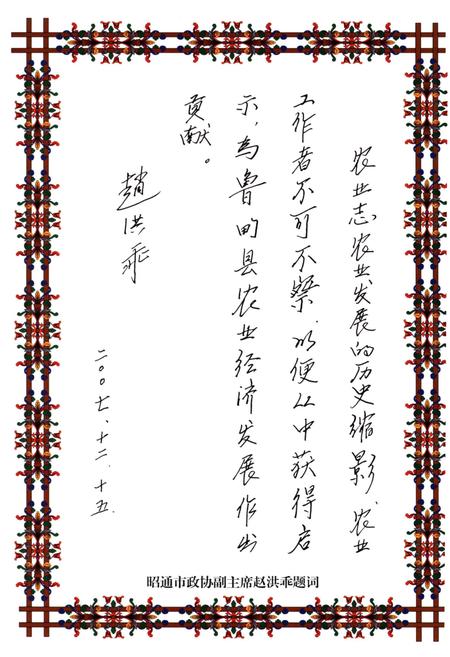 农业志农业发展的历史缩影、农业
工作者不可不察，以便从中获得启
示，为鲁甸县农业经济发展作出
贡献。
趙洪乖
二〇〇七、十二、十五.
昭通市政协副主席赵洪乖题词